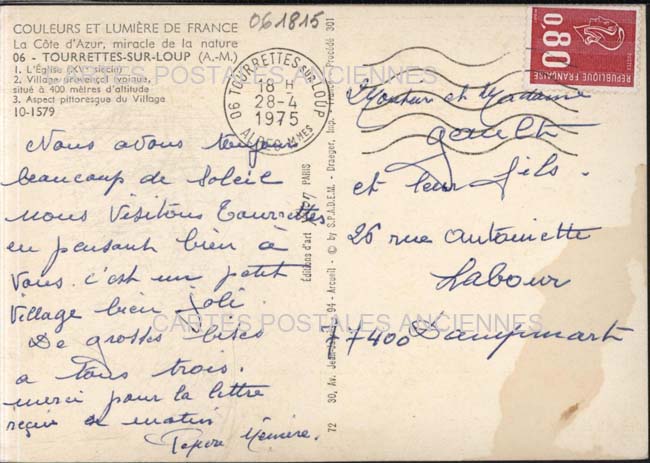 COULEURS ET LUMIÈRE DE FRANCE
La Côte d'Azur, miracle de la nature
06 - TOURRETTES-SUR-LOUP (A.-M.)
1. L'Église (XVᵉ siècle)
2. Village provençal typique,
situé à 400 mètres d'altitude
3. Aspect pittoresque du Village
10-1579
061815
06 TOURRETTES SUR LOUP
18 H
28-4
1975
ALPES MMES
0,80
REPUBLIQUE FRANÇAISE
CARTES POSTALES ANCIENNES
Nous avons toujours
beaucoup de Soleil
nous Visitons Tourrettes
en pensant bien à
Vous. c'est un petit
Village bien Joli.
De grosses bises
a tous trois.
merci pour la lettre
reçue ce matin
Mémère.
Éditions d'art PARIS
72 30, Av. 94 - Arcueil - © by S.P.A.D.E.M. - Draeger, Imp. Procédé 301
Monsieur et Madame
et leur fils.
26 rue Antoinette
Labour
77400 Dampmart
CARTES POSTALES ANCIENNES